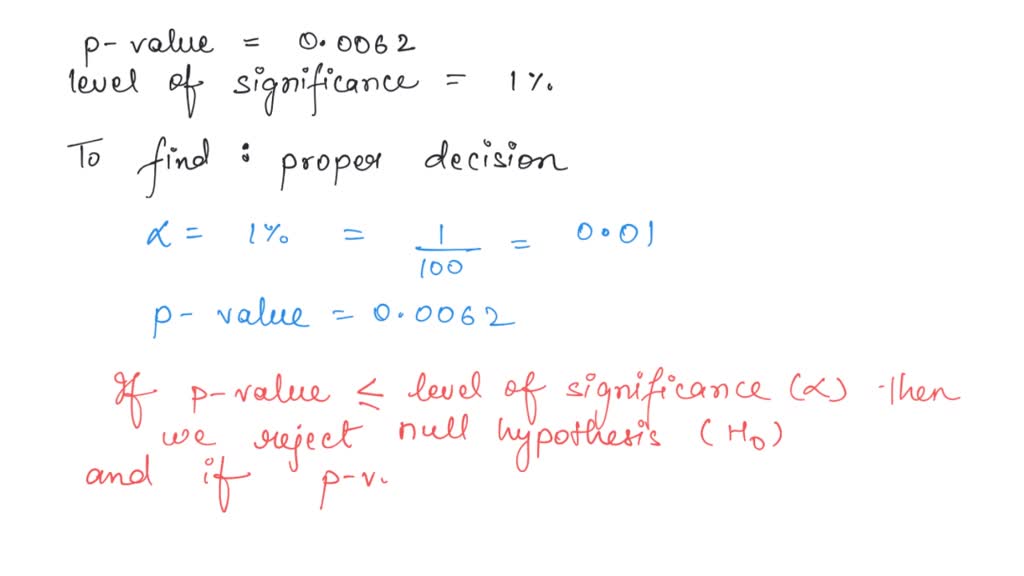 p-value = 0.0062
level of significance = 1%.
To find : proper decision
α = 1% = 1/100 = 0.01
p-value = 0.0062
If p-value ≤ level of significance (α) then
we reject null hypothesis (H0)
and if p-v.